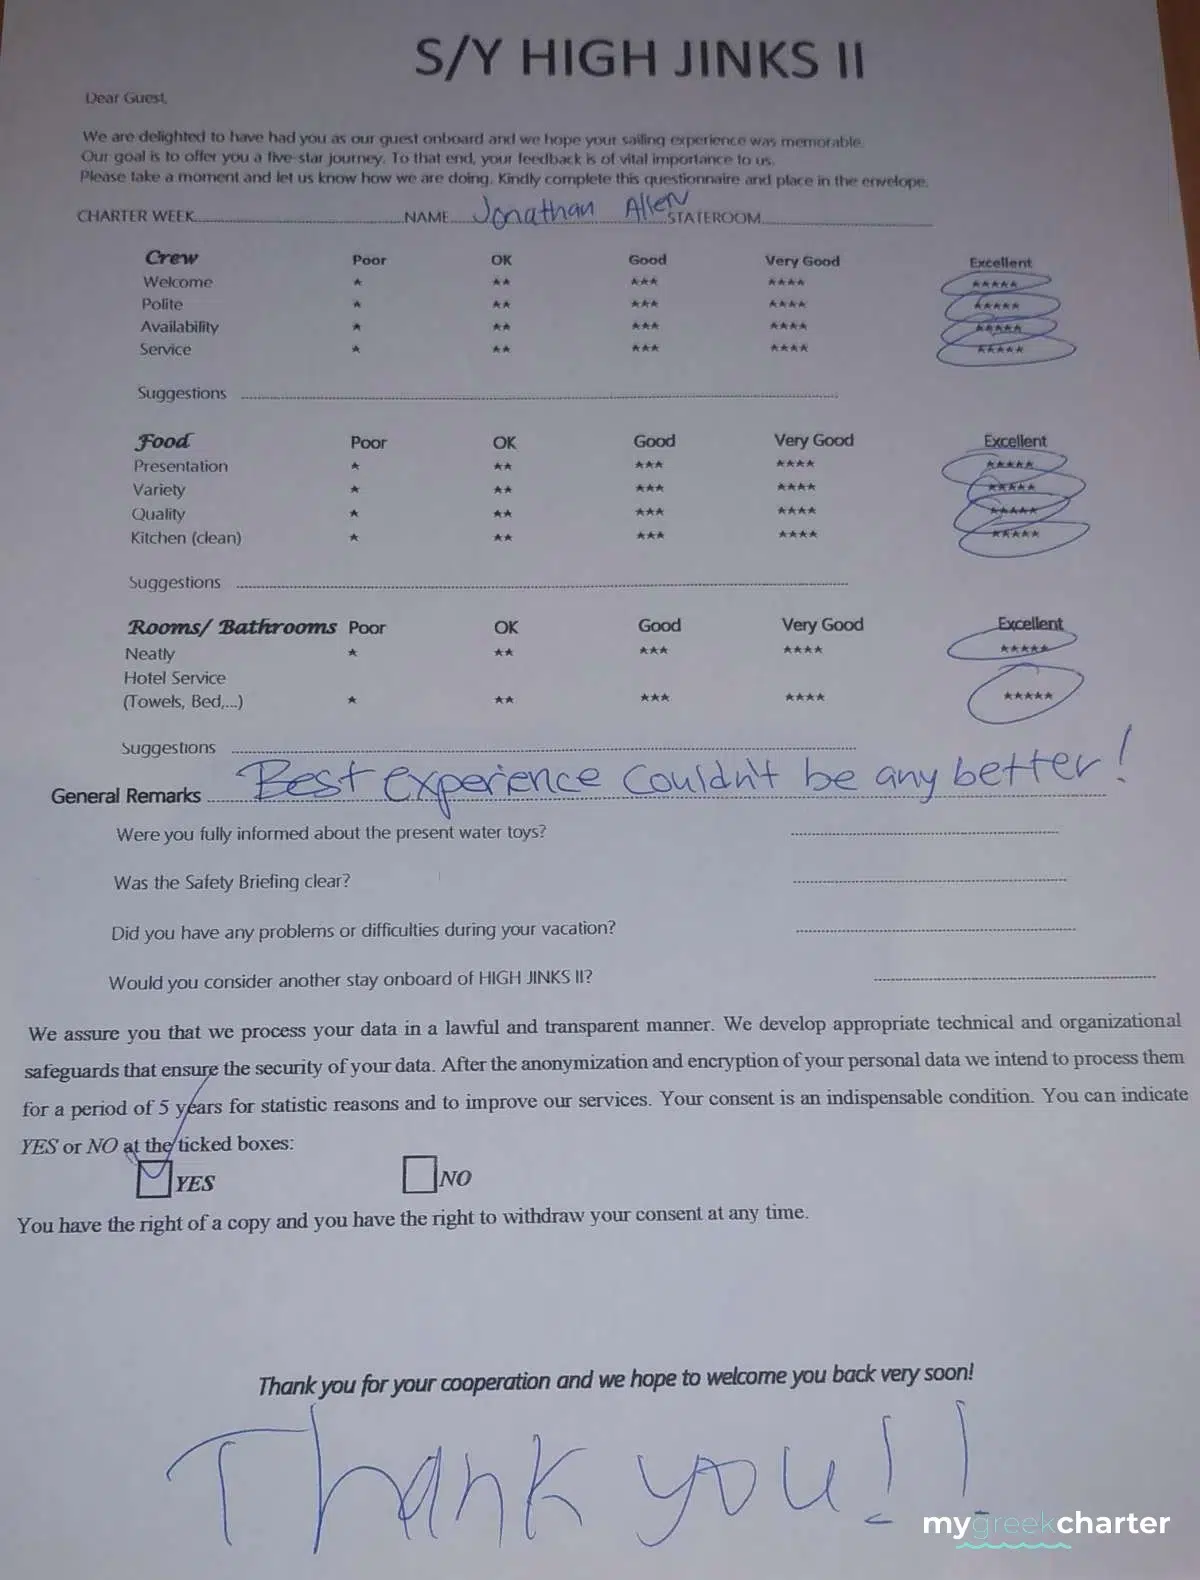 S/Y HIGH JINKS II
Dear Guest,
We are delighted to have had you as our guest onboard and we hope your sailing experience was memorable.
Our goal is to offer you a five-star journey. To that end, your feedback is of vital importance to us.
Please take a moment and let us know how we are doing. Kindly complete this questionnaire and place in the envelope.
CHARTER WEEK NAME Jonathan Allen STATEROOM
Crew Poor OK Good Very Good Excellent
Welcome ★ ★★ ★★★ ★★★★ ★★★★★
Polite ★ ★★ ★★★ ★★★★ ★★★★★
Availability ★ ★★ ★★★ ★★★★ ★★★★★
Service ★ ★★ ★★★ ★★★★ ★★★★★
Suggestions
Food Poor OK Good Very Good Excellent
Presentation ★ ★★ ★★★ ★★★★ ★★★★★
Variety ★ ★★ ★★★ ★★★★ ★★★★★
Quality ★ ★★ ★★★ ★★★★ ★★★★★
Kitchen (clean) ★ ★★ ★★★ ★★★★ ★★★★★
Suggestions
Rooms/ Bathrooms Poor OK Good Very Good Excellent
Neatly ★ ★★ ★★★ ★★★★ ★★★★★
Hotel Service
(Towels, Bed,...) ★ ★★ ★★★ ★★★★ ★★★★★
Suggestions
General Remarks Best experience couldn't be any better!
Were you fully informed about the present water toys?
Was the Safety Briefing clear?
Did you have any problems or difficulties during your vacation?
Would you consider another stay onboard of HIGH JINKS II?
We assure you that we process your data in a lawful and transparent manner. We develop appropriate technical and organizational
safeguards that ensure the security of your data. After the anonymization and encryption of your personal data we intend to process them
for a period of 5 years for statistic reasons and to improve our services. Your consent is an indispensable condition. You can indicate
YES or NO at the ticked boxes:
YES NO
You have the right of a copy and you have the right to withdraw your consent at any time.
Thank you for your cooperation and we hope to welcome you back very soon!
Thank you!!
mygreekcharter